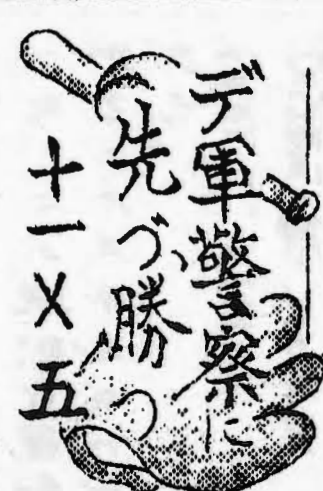 デ軍警察に
先づ勝つ
十一X五